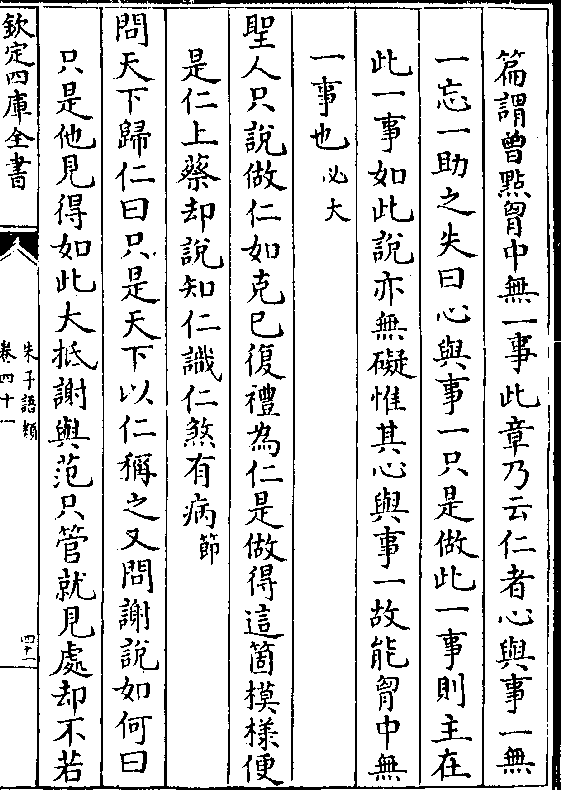 篇謂曾㸃胷中無一事此章乃云仁者心與事一無
一忘一助之失曰心與事一只是做此一事則主在
此一事如此說亦無礙惟其心與事一故能胷中無
一事也必大
聖人只說做仁如克己復禮為仁是做得這箇模様便
是仁上蔡却說知仁識仁煞有病節
問天下歸仁曰只是天下以仁稱之又問謝說如何曰
只是他見得如此大抵謝與范只管就見處却不若
欽定四庫全書
朱子語類
卷四十一
四十一